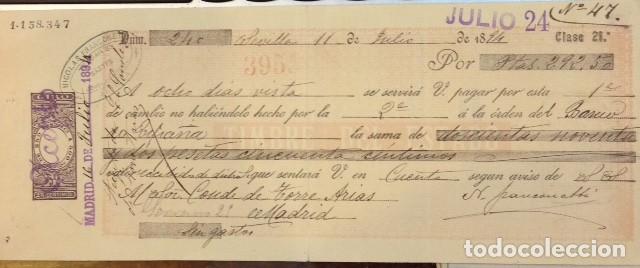 1-158.347
JULIO 24
Nº 47.
Núm. 240 Sevilla 11 de Julio de 1894 Clase 21ª
395
Por Ptas. 292,50
A ocho días vista se servirá V. pagar por esta 1ª
de cambio no habiéndolo hecho por la 2ª á la órden del Banco
la suma de doscientas noventa
dos pesetas cincuenta céntimos
que sentará V. en Cuenta segun aviso de
Al Señor Conde de Torre Arias
Madrid
Sin gastos
MADRID 16 DE Julio 1894
todocoleccion.net